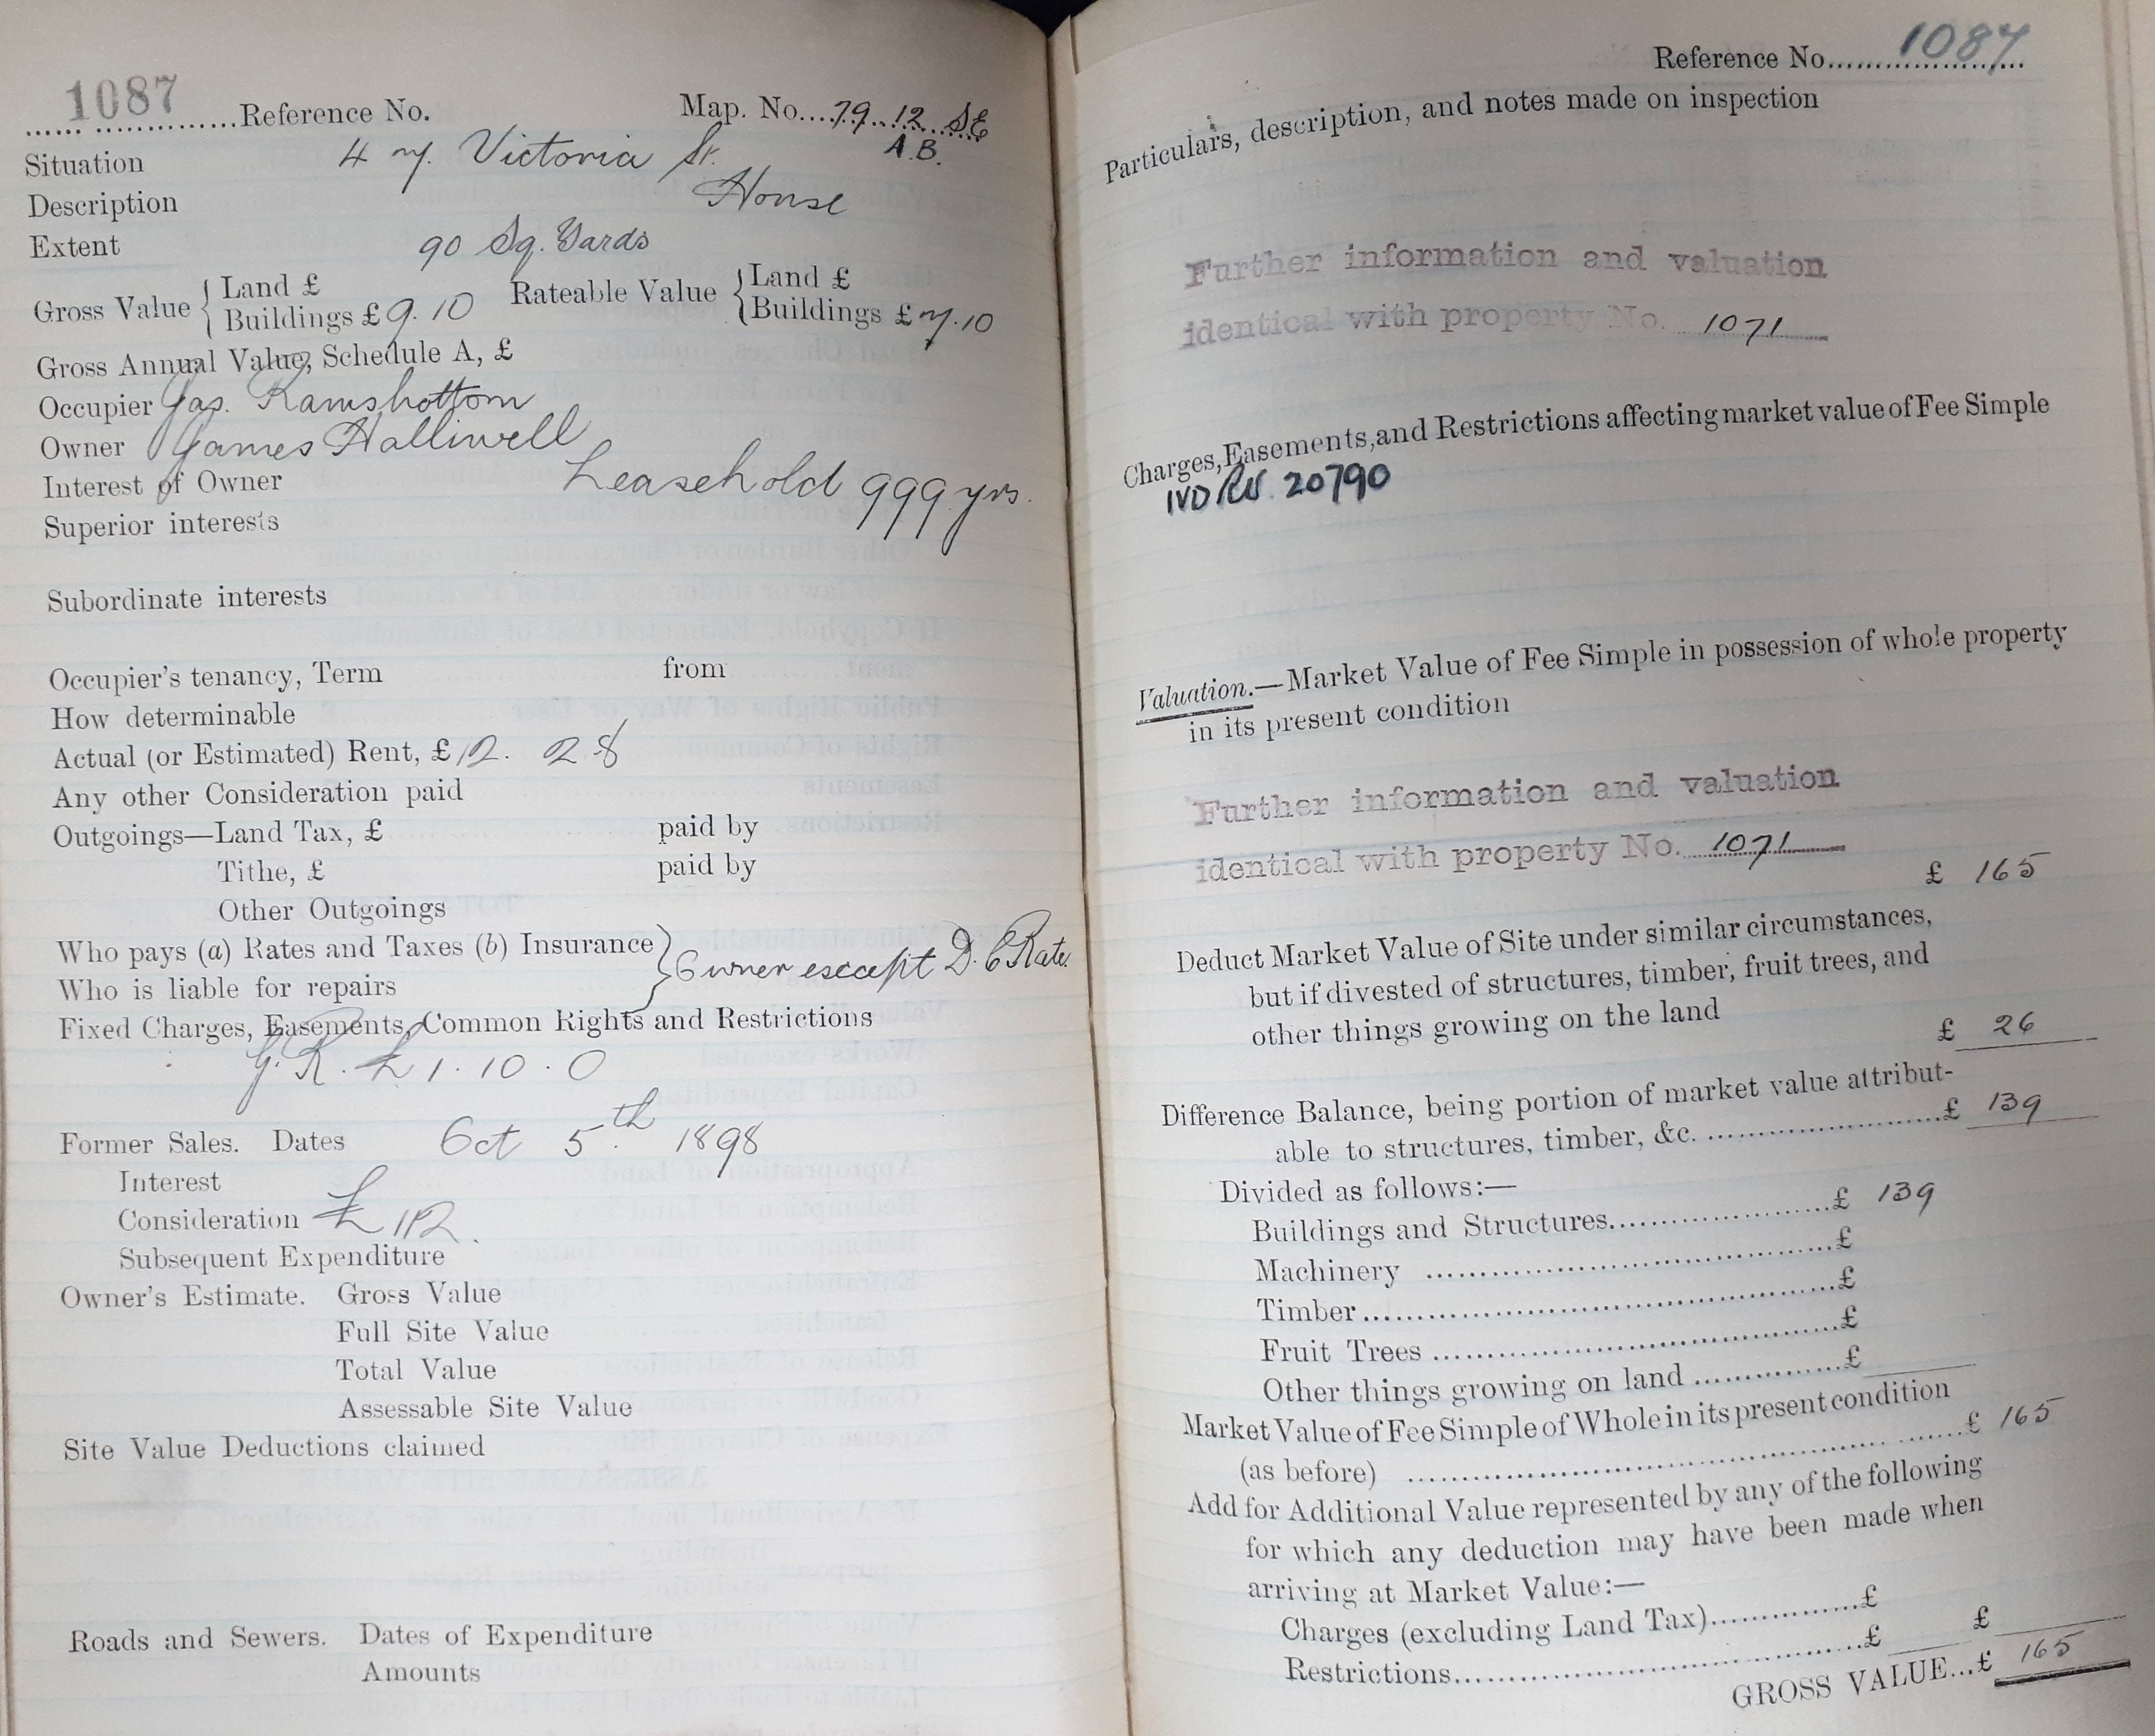 1087 Reference No. Map. No. 79. 12 SE
A.B.
Situation 47 Victoria St.
Description House
Extent 90 Sq. Yards
Gross Value { Land £ Rateable Value { Land £
Buildings £ 9. 10 Buildings £ 7.10
Gross Annual Value, Schedule A, £
Occupier Jas. Ramsbottom
Owner James Halliwell
Interest of Owner Leasehold 999 yrs.
Superior interests
Subordinate interests
Occupier's tenancy, Term from
How determinable
Actual (or Estimated) Rent, £ 12. 2 8
Any other Consideration paid
Outgoings—Land Tax, £ paid by
Tithe, £ paid by
Other Outgoings
Who pays (a) Rates and Taxes (b) Insurance } Owner except D. C Rate.
Who is liable for repairs
Fixed Charges, Easements, Common Rights and Restrictions
G. R. £1. 10. 0
Former Sales. Dates Oct 5th 1898
Interest
Consideration £112.
Subsequent Expenditure
Owner's Estimate. Gross Value
Full Site Value
Total Value
Assessable Site Value
Site Value Deductions claimed
Roads and Sewers. Dates of Expenditure
Amounts
Reference No. 1087
Particulars, description, and notes made on inspection
Further information and valuation
identical with property No. 1071
Charges, Easements, and Restrictions affecting market value of Fee Simple
20790
Valuation.—Market Value of Fee Simple in possession of whole property
in its present condition
Further information and valuation
identical with property No. 1071
£ 165
Deduct Market Value of Site under similar circumstances,
but if divested of structures, timber, fruit trees, and
other things growing on the land £ 26
Difference Balance, being portion of market value attribut-
able to structures, timber, &c. £ 139
Divided as follows:—
Buildings and Structures £ 139
Machinery £
Timber £
Fruit Trees £
Other things growing on land £
Market Value of Fee Simple of Whole in its present condition
(as before) £ 165
Add for Additional Value represented by any of the following
for which any deduction may have been made when
arriving at Market Value:—
Charges (excluding Land Tax) £
Restrictions £ £
GROSS VALUE...£ 165